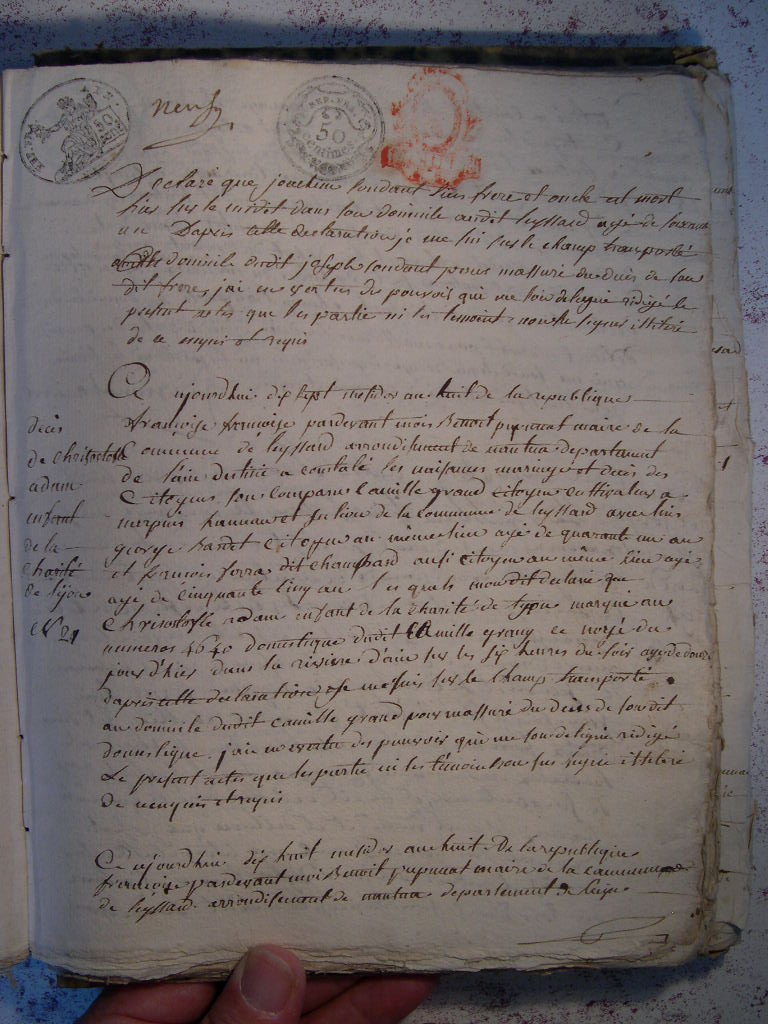 REP. FRA.
50 CENT
neuf
REP. FRA.
50
centimes
Declare que joachim fondant son frere et oncle est mort
hier sur le dans son domicile audit leyssard agé de soixante
un Dapres cette declaration je me sui sur le champ transporté
domicile dudit joseph fondant pour massuré du décès de son
dit frere, jai en vertus du pouvoir qui me sois delegué redigé le
present actes que les partie ni les temoint non sus signer illiteré
de ce enquis et requis
Ce ajourdhui dix sept mesidor an huit de la republique
françoise pardevant mois Benoit maire de la
Commune de leyssard arrondissement de nantua departement
de lain destiné a constaté les naisances mariage et décès des
Citoyens son Comparu Camille grand Citoyen Cultivateur a
et de la commune de leyssard avec lui
george Citoyen au même lieu agé de quarante un an
et francois ferra dit Chambard ausi Citoyen au même lieu agé
agé de cinquante cinq an les quels mon dit declare que
Christofle adam enfant de la charité de lyon marqué au
numeros 4640 domestique dudit Camille grand ce noyé du
jours d'hier dans la riviere d'ain sur les six heures du soir agé de douze
dapres cette declaration je me suis sur le champ transporté
au domicile dudit Camille grand pour massuré du décès de son dit
domestique. jai en vertu des pouvoir qui me son deligué redigé
Le present actes que les partie ni les témoint non sus signer illiteré
de ce enquis et requis
décès
de Christofle
adam
enfant
de la
Charité
de lyon
N° 21
Ce ajourdhui dix huit mesidor an huit de la republique
françoise pardevant moi Benoit maire de la commune
de leyssard arrondissement de nantua departement de